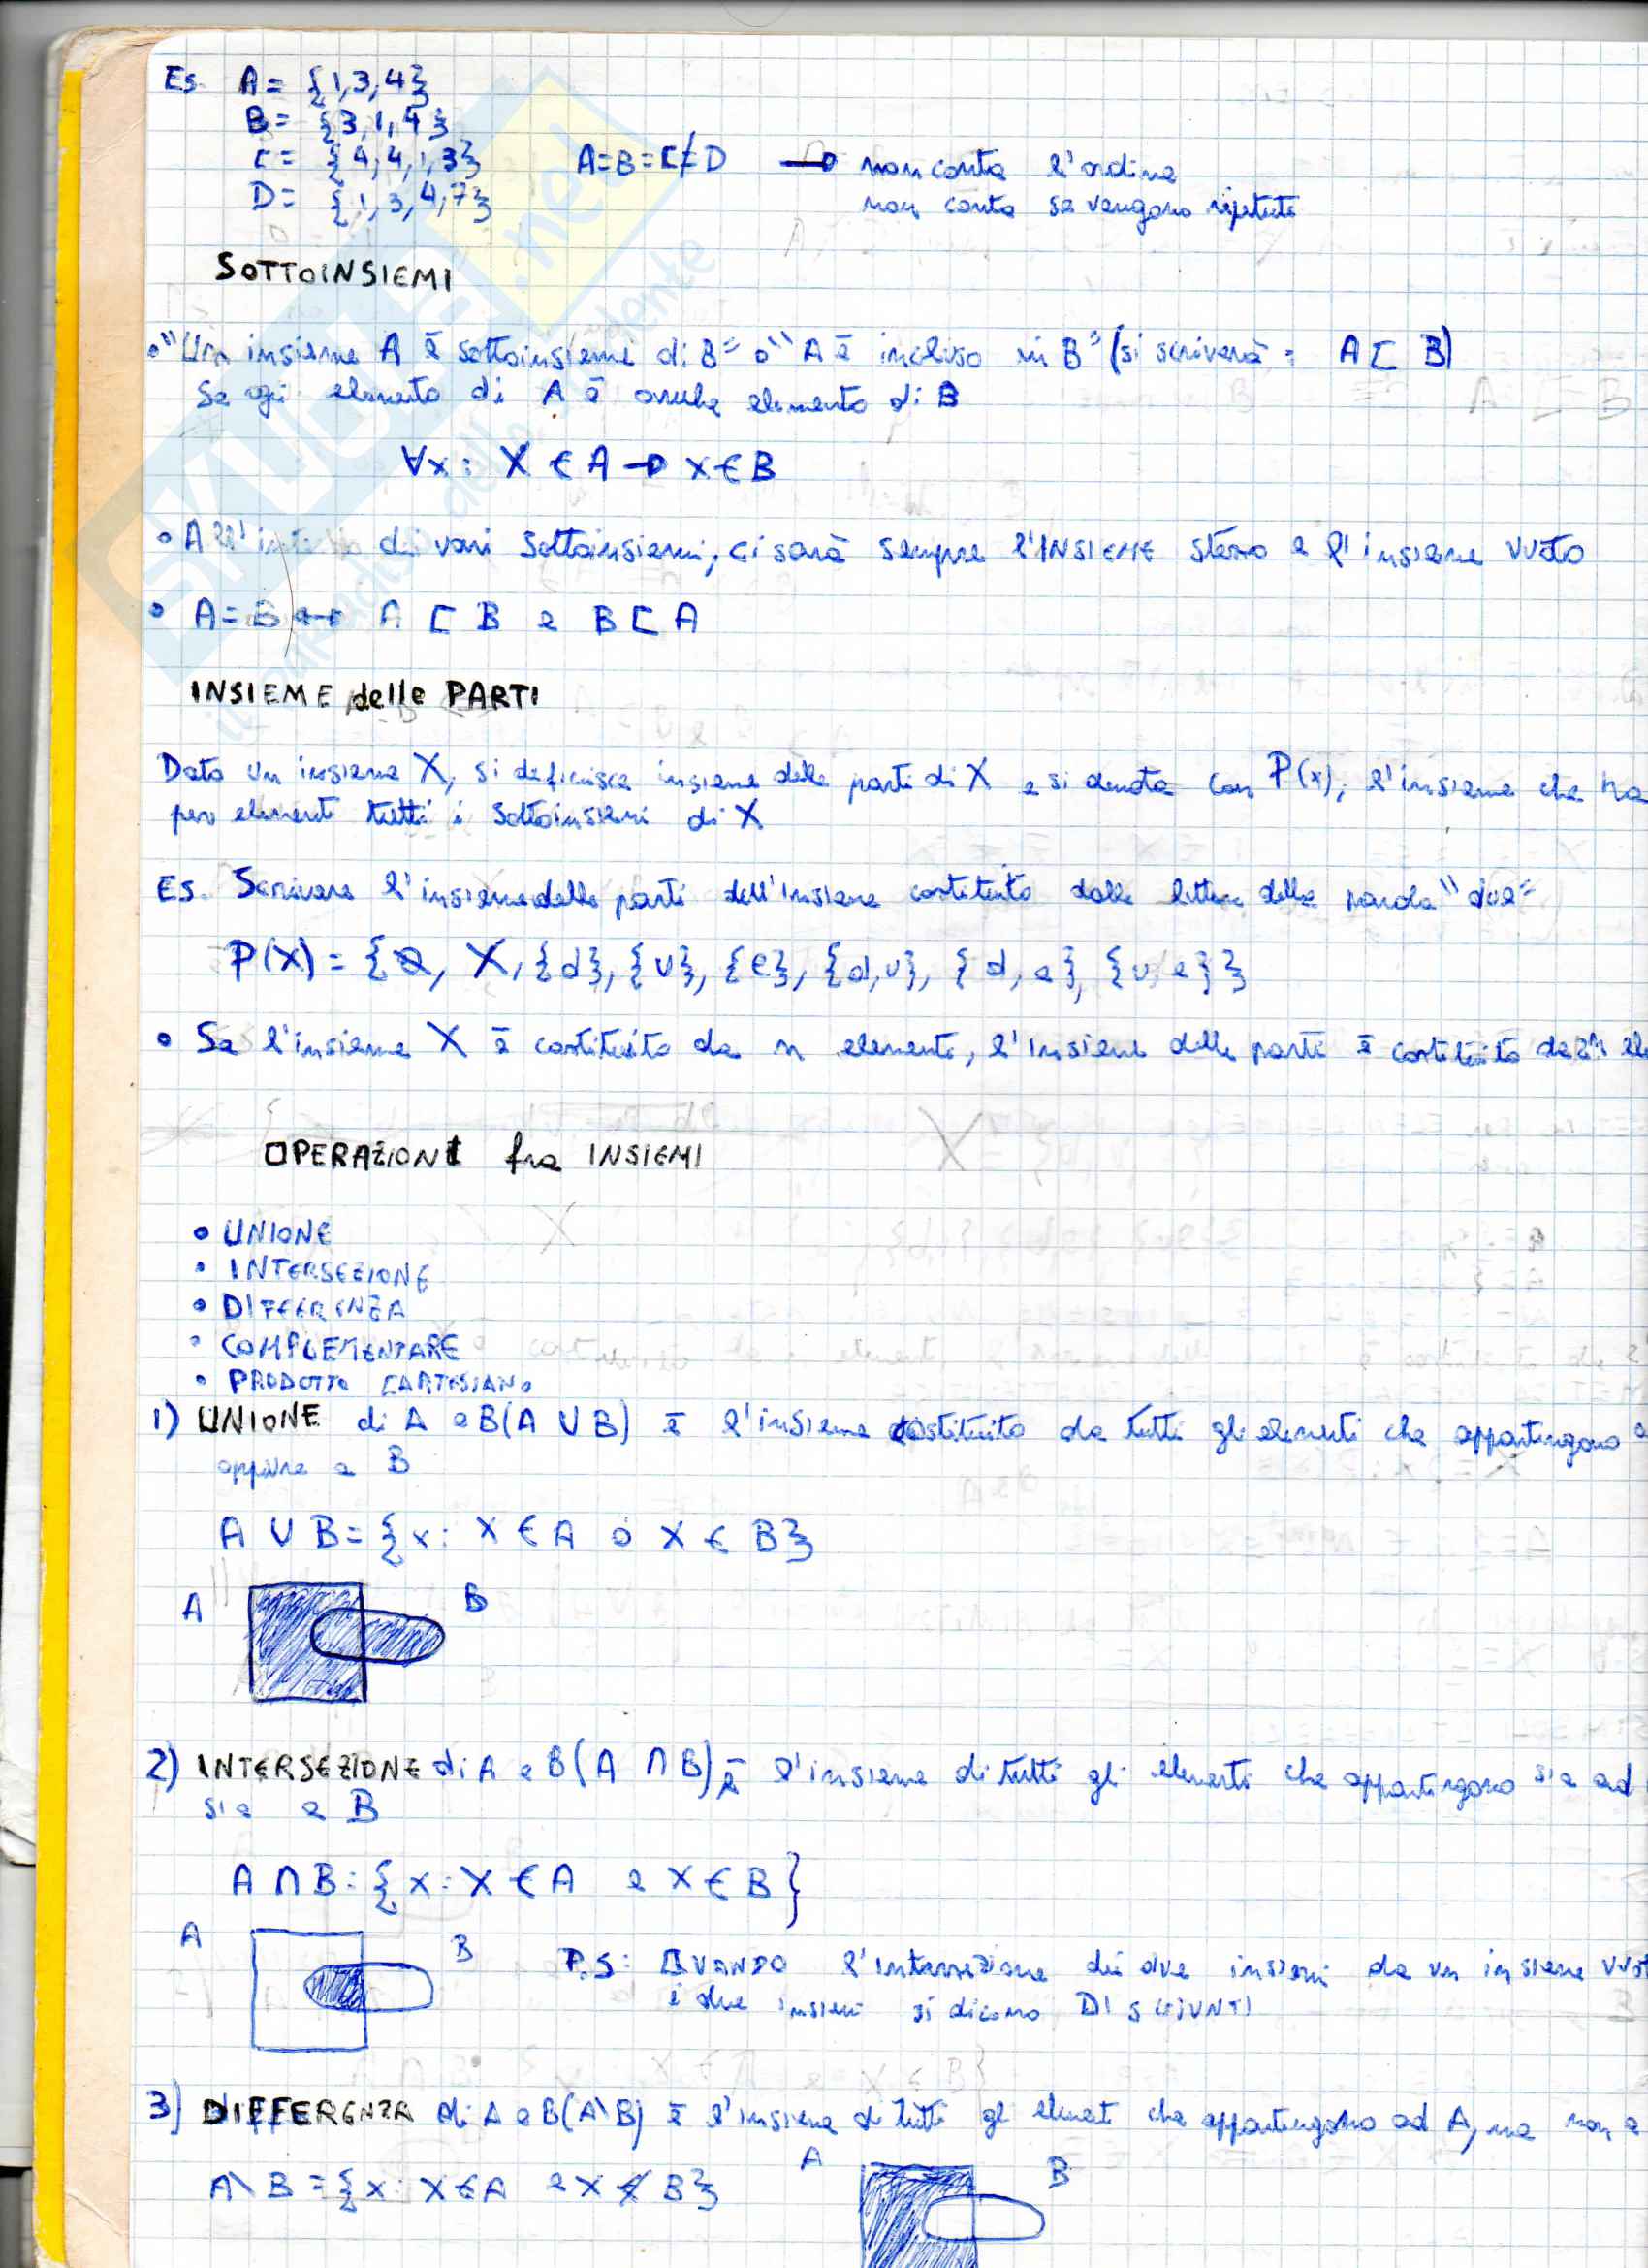 Es. A = {1,3,4}
B = {3,1,4}
C = {4,4,1,3}
D = {1,3,4,7}
A=B=C≠D → non conta l'ordine
non conta se vengono ripetuti
SOTTOINSIEMI
• "Un insieme A è sottoinsieme di B" o "A è incluso in B" (si scriverà: A ⊏ B)
Se ogni elemento di A è anche elemento di B
∀x: X ∈ A → x ∈ B
• All'interno dei vari sottoinsiemi, ci sarà sempre l'INSIEME stesso e l'insieme vuoto
• A=B ↔ A ⊏ B e B ⊏ A
INSIEME delle PARTI
Dato un insieme X, si definisce insieme delle parti di X e si denota con P(x), l'insieme che ha
per elementi tutti i sottoinsiemi di X
Es. Scrivere l'insieme delle parti dell'insieme costituito dalle lettere della parola "due"
P(X) = {∅, X, {d}, {u}, {e}, {d,u}, {d,e}, {u,e}}
• Se l'insieme X è costituito da n elementi, l'insieme delle parti è costituito da 2ⁿ ele
OPERAZIONI fra INSIEMI
• UNIONE
• INTERSEZIONE
• DIFFERENZA
• COMPLEMENTARE
• PRODOTTO CARTESIANO
1) UNIONE di A e B (A ∪ B) è l'insieme costituito da tutti gli elementi che appartengono a
oppure a B
A ∪ B = {x: X ∈ A o X ∈ B}
A B
2) INTERSEZIONE di A e B (A ∩ B) è l'insieme di tutti gli elementi che appartengono sia ad
sia a B
A ∩ B = {x: X ∈ A e X ∈ B}
A B
P.S: QUANDO l'intersezione di due insiemi da un insieme vuot
i due insiemi si dicono DISGIUNTI
3) DIFFERENZA di A e B (A\B) è l'insieme di tutti gli elementi che appartengono ad A, ma non a
A\B = {x: X ∈ A e X ∉ B}
A B